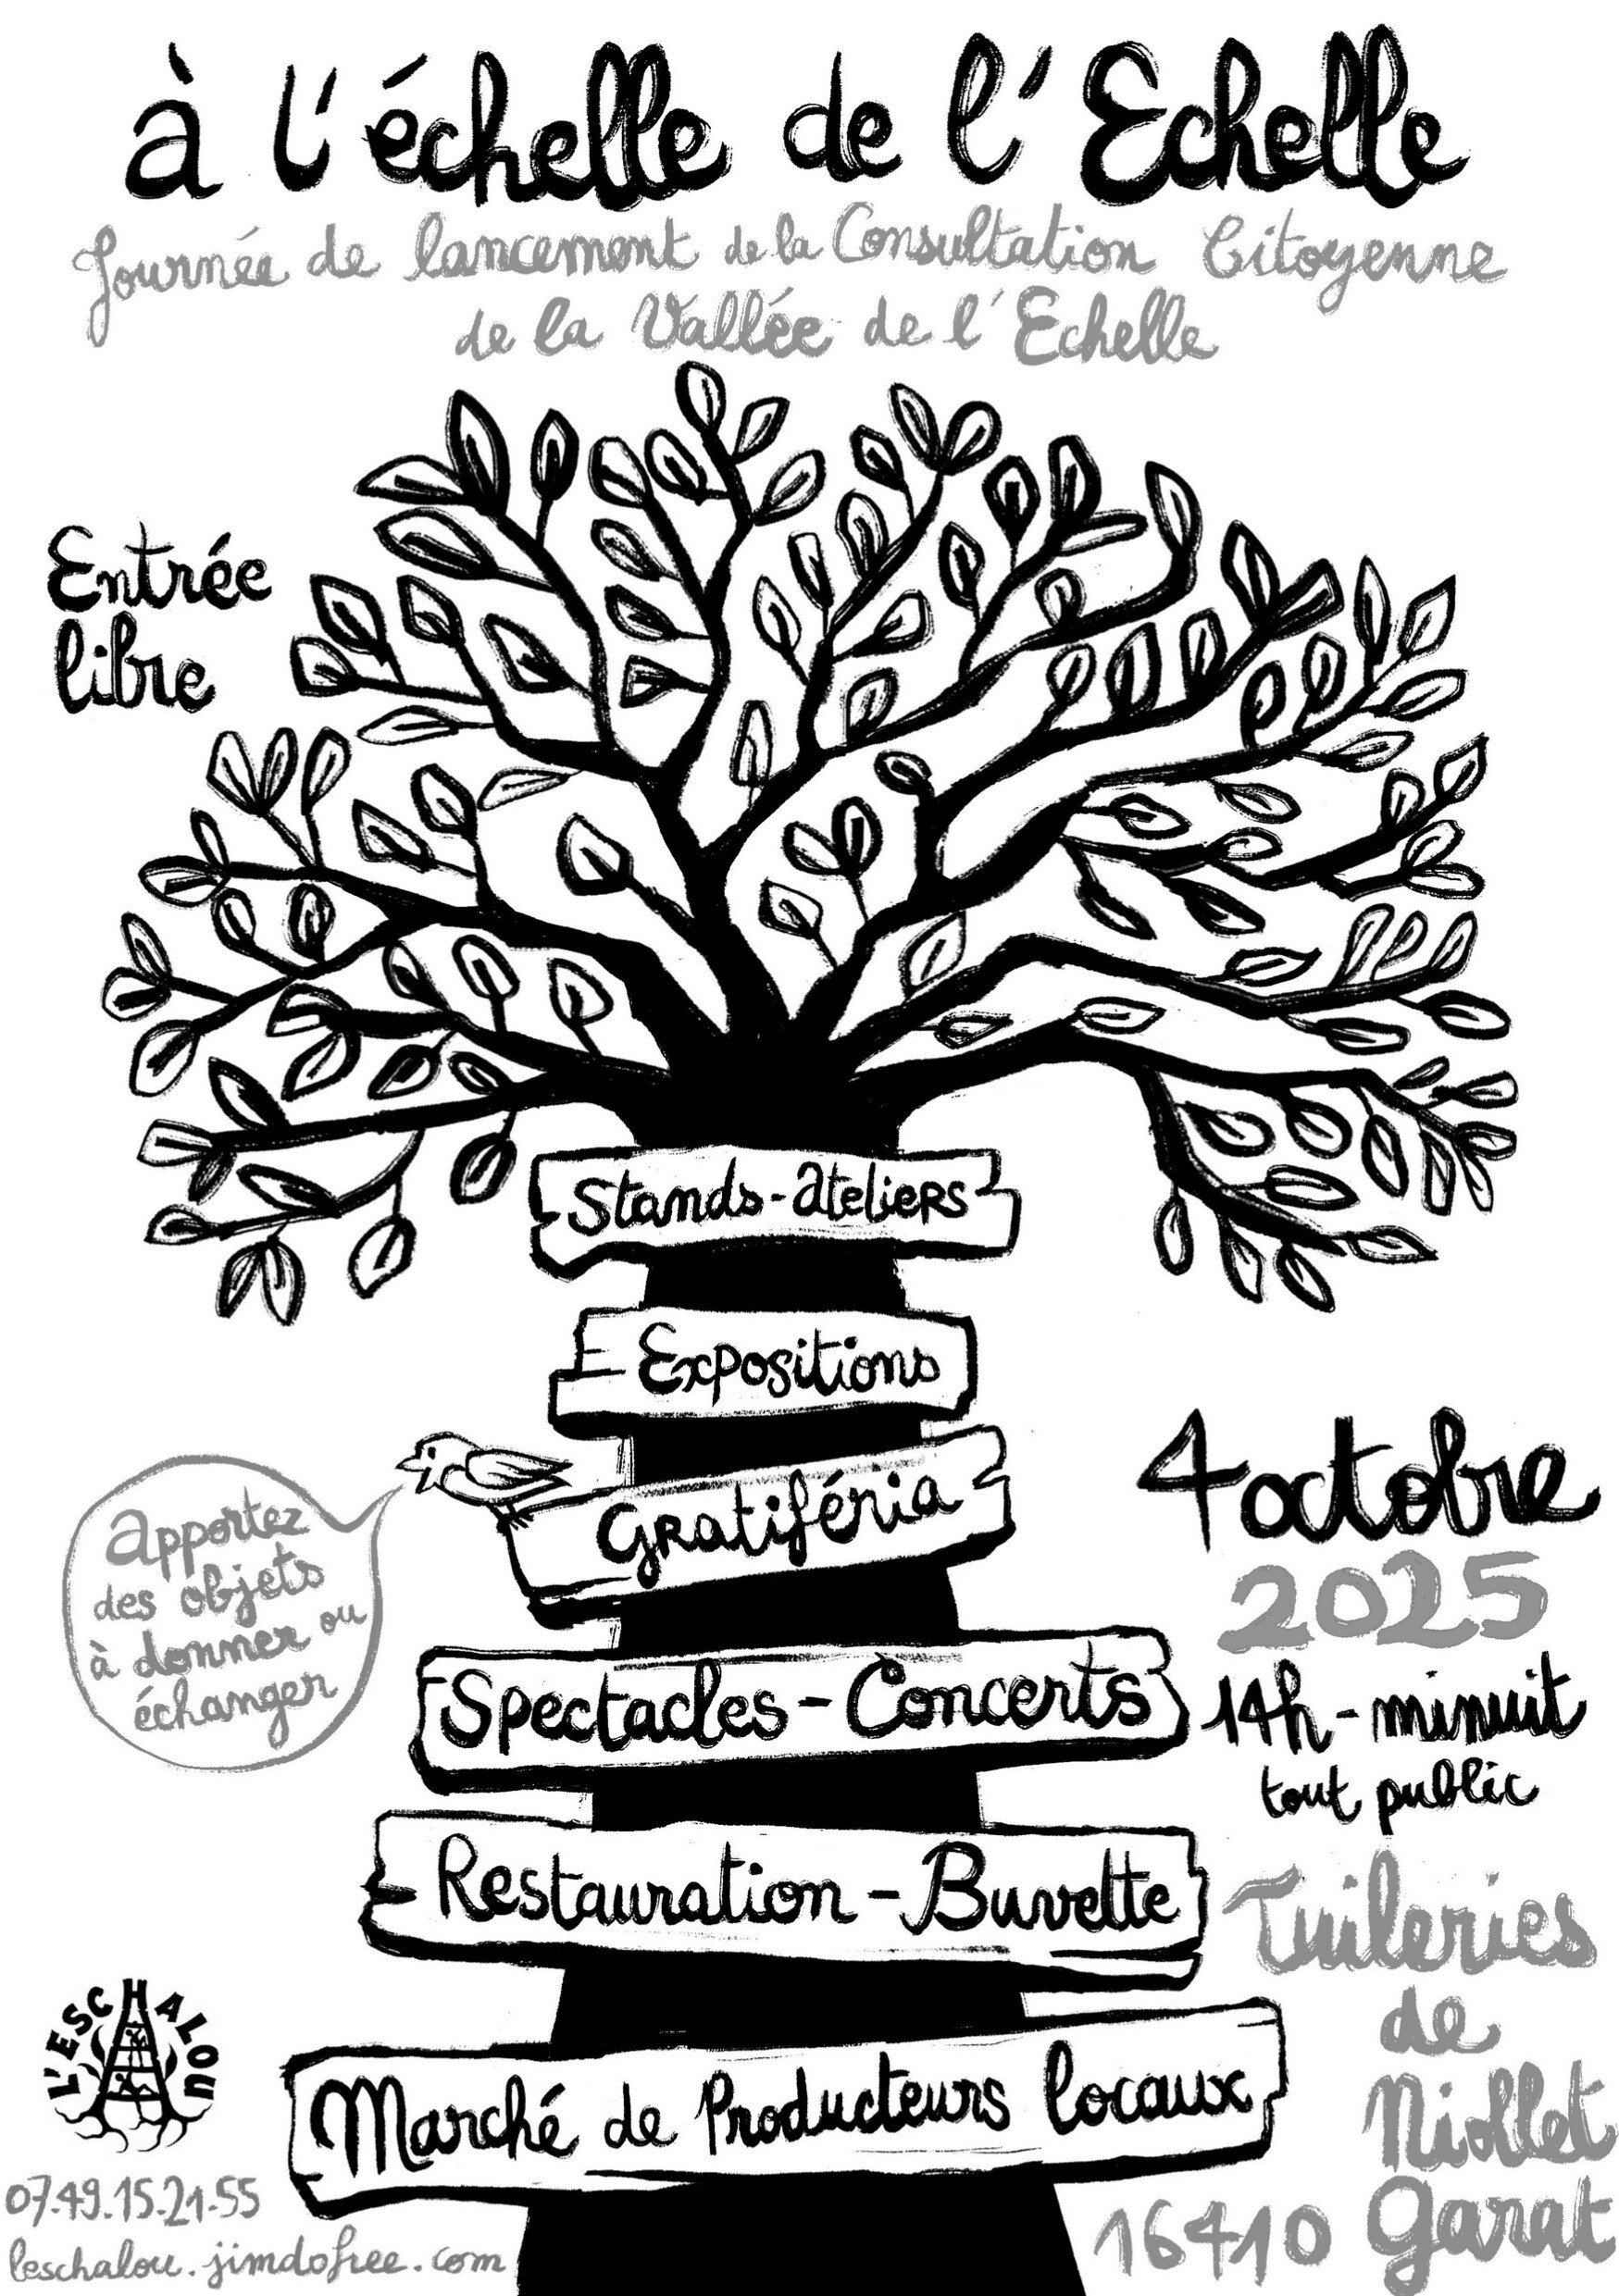 à l'échelle de l'Echelle
Journée de lancement de la Consultation Citoyenne
de la Vallée de l'Echelle
Entrée
libre
Stands-ateliers
Expositions
Gratiféria
apportez
des objets
à donner ou
échanger
4 octobre
2025
Spectacles-Concerts
14h-minuit
tout public
Restauration-Buvette
Tuileries
de
Niollet
Marché de Producteurs locaux
L'ESCHALOU
07.49.15.21.55
leschalou.jimdofree.com
16410 Garat